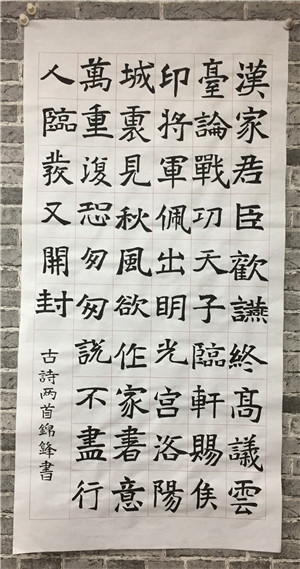 漢家君臣歡讌終高議雲
臺論戰功天子臨軒賜侯
印將軍佩出明光宮洛陽
城裏見秋風欲作家書意
萬重復恐匆匆說不盡行
人臨發又開封
古詩两首錦鋒書